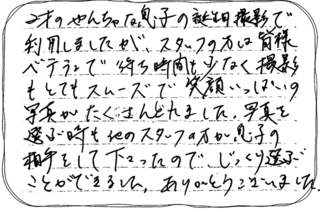 2才のやんちゃな息子の誕生日撮影で
利用しましたが、スタッフの方は皆様
ベテランで待ち時間も少なく撮影
もとてもスムーズで笑顔いっぱいの
写真がたくさんとれました。写真を
選ぶ時も他のスタッフの方が息子の
相手をして下さったので、じっくり選ぶ
ことができました。ありがとうございました。